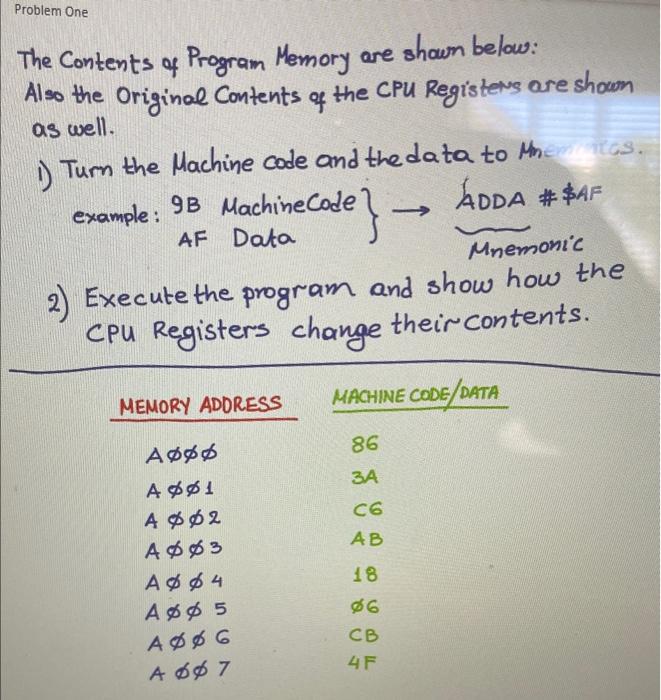 Problem One
The Contents of Program Memory are shown below:
Also the Original Contents of the CPU Registers are shown
as well.
1) Turn the Machine code and the data to Mnemonics.
example: 9B Machine Code } → ADDA #$AF
AF Data Mnemonic
2) Execute the program and show how the
CPU Registers change their contents.
MEMORY ADDRESS MACHINE CODE/DATA
AØØØ 86
AØØ1 3A
AØØ2 C6
AØØ3 AB
AØØ4 18
AØØ5 Ø6
AØØ6 CB
AØØ7 4F